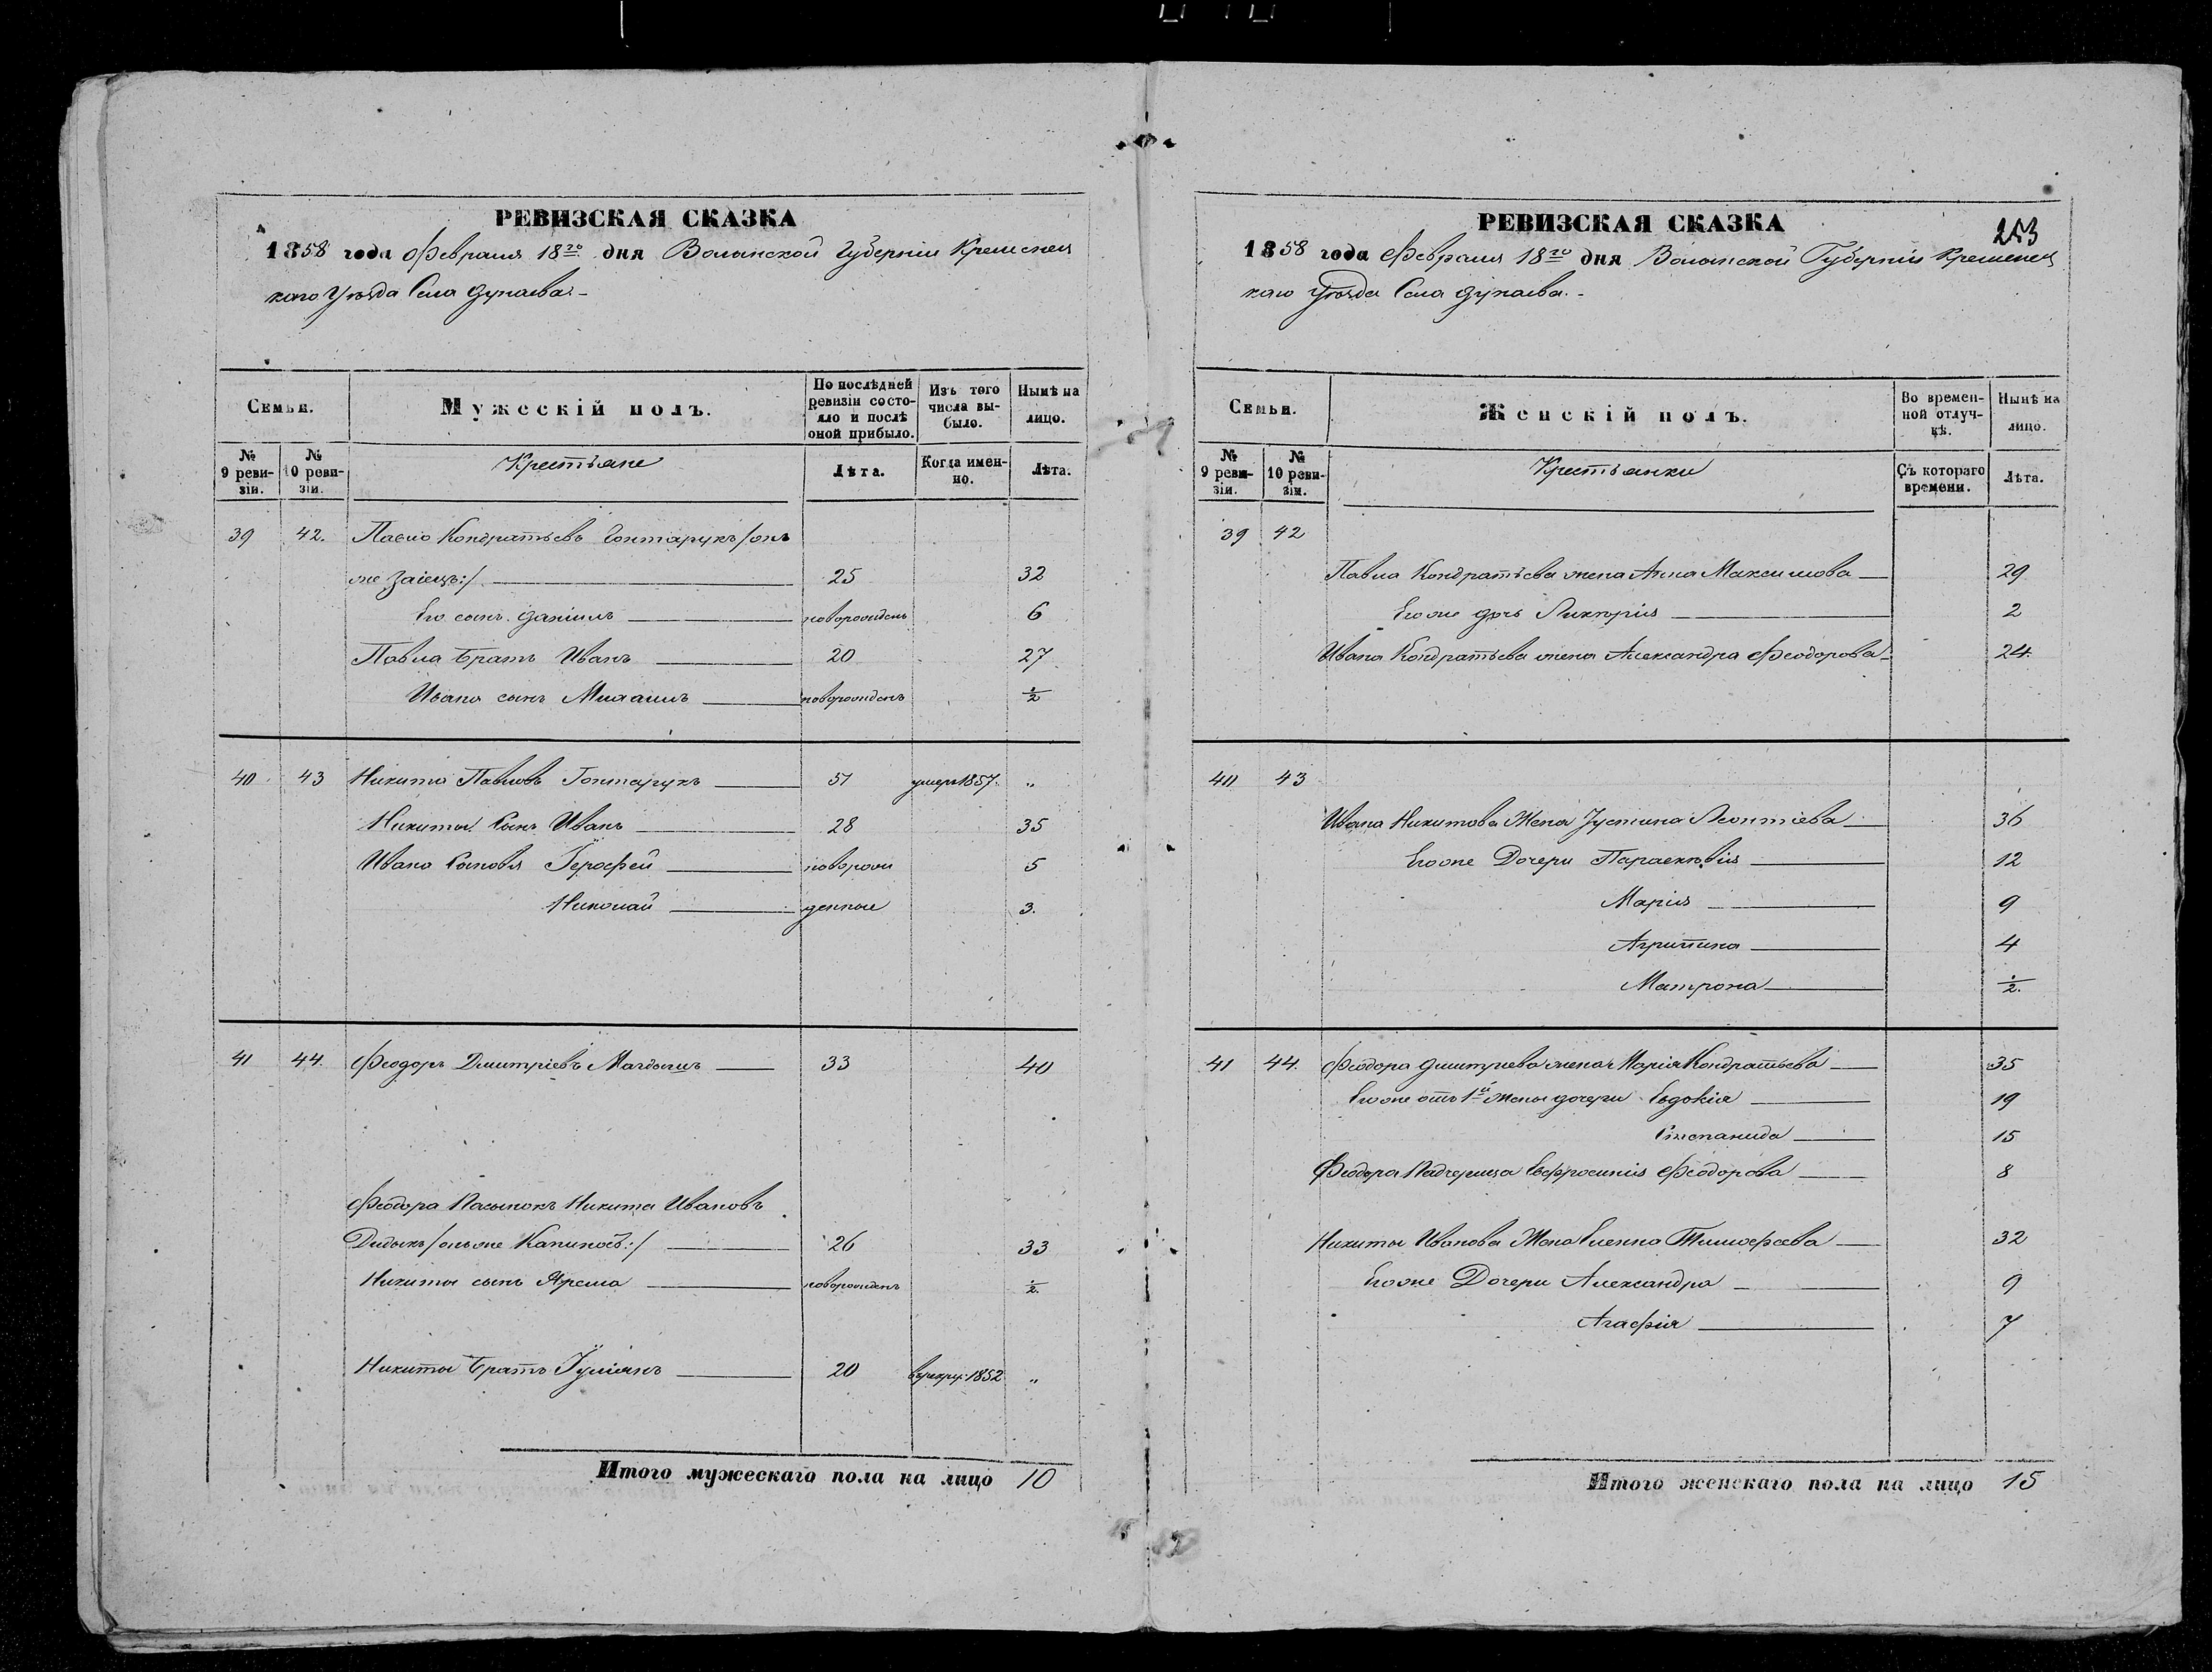 РЕВИЗСКАЯ СКАЗКА
1858 года Февраля 18го дня Волынской Губерніи Кременец
каго Уѣзда Села Дунаева.-
Семьи.
Мужескій полъ.
По послѣдней ревизіи состояло и послѣ оной прибыло.
Изъ того числа выбыло.
Нынѣ на лицо.
№ 9 ревизіи.
№ 10 ревизіи.
Крестьяне
Лѣта.
Когда именно.
Лѣта.
39 42. Павло Кондратьевъ Гонтарукъ /онъ
же Заіецъ:/ 25 32
Его сынъ Даніилъ новорожденъ 6
Павла братъ Иванъ 20 27
Ивана сынъ Михаилъ новорожденъ ½
40 43 Никита Павловъ Гонтарукъ 51 умеръ 1857. „
Никиты Сынъ Иванъ 28 35
Ивана Сыновья Іерофей новорож 5
Николай денные 3.
41 44. Феодоръ Дмитріевъ Магдышъ 33 40
Феодора Пасынокъ Никита Ивановъ
Дидыкъ /онъ же Капиносъ:/ 26 33
Никиты сынъ Ярема новорожденъ ½.
Никиты братъ Іуліянъ 20 в рекру: 1852 „
Итого мужескаго пола на лицо 10
РЕВИЗСКАЯ СКАЗКА
253
1858 года Февраля 18го дня Волынской Губерніи Кременец
каго Уѣзда Села Дунаева.-
Семьи.
Женскій полъ.
Во временной отлучкѣ.
Нынѣ на лицо.
№ 9 ревизіи.
№ 10 ревизіи.
Крестьянки
Съ котораго времени.
Лѣта.
39 42
Павла Кондратьева жена Анна Максимова 29
Его же дочь Ликерія 2
Ивана Кондратьева жена Александра Феодорова 24.
40 43
Ивана Никитова Жена Іустина Леонтіева 36
Его же Дочери Параскевія 12
Марія 9
Агрипина 4
Матрона ½.
41 44. Феодора Дмитриева жена Марія Кондратьева 35
Его же отъ 1й жены дочери Евдокія 19
Степанида 15
Феодора Падчерица Евфросинія Феодорова 8
Никиты Иванова Жена Елена Тимофеева 32
Его же Дочери Александра 9
Агафія 7
Итого женскаго пола на лицо 15